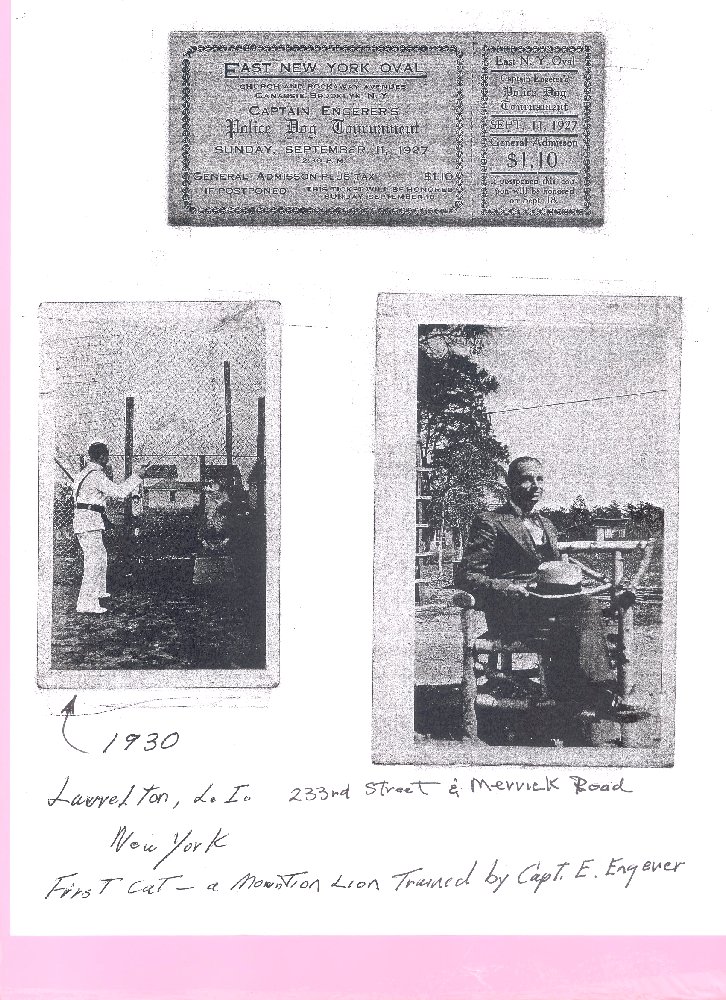 EAST NEW YORK OVAL
CHURCH AND ROCKAWAY AVENUES
CANARSIE, BROOKLYN, N.Y.
CAPTAIN ENGERER'S
Police Dog Tournament
SUNDAY, SEPTEMBER 11, 1927
2:30 P.M.
GENERAL ADMISSON PLUS TAX $1.10
IF POSTPONED THIS TICKET WILL BE HONORED
SUNDAY, SEPTEMBER 18
East N. Y. Oval
Captain Engerer's
Police Dog
Tournament
SEPT. 11, 1927
General Admisson
$1.10
If postponed this cou-
pon will be honored
on Sept. 18
1930
Laurelton, L. I. 233rd Street & Merrick Road
New York
First Cat - a Mountion Lion Trained by Capt. E. Engerer